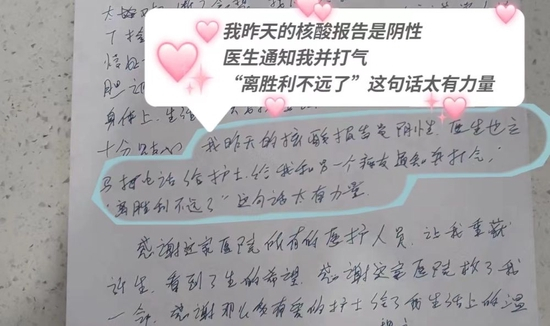 我昨天的核酸报告是阴性
医生通知我并打气
“离胜利不远了”这句话太有力量
身体上,生
十分 我昨天的核酸报告是阴性,医生也立
马打电话给护士,给我和另一个病友通知并打气,
“离胜利不远了”这句话太有力量
感谢这家医院所有的医护人员,让我重获
新生,看到了生的希望,感谢这家医院救了我
一命,感谢那么多有爱的护士给了我生活上的温